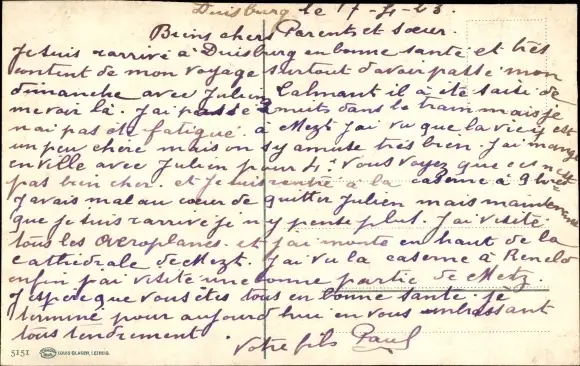 Duisburg le 17-4-23.
Biens chers Parents et sœur.
Je suis rarrivé à Duisburg en bonne santé et très
content de mon voyage surtout d'avoir passé mon
dimanche avec Julien Calmant il a été saisi de
me voir là. J'ai passé 2 nuits dans le train mais je
n'ai pas été fatigué. à Mezt J'ai vu que la vie y est
un peu chère mais on s'y amuse très bien. J'ai mangé
en ville avec Julien pour 4 vous voyez que ce n'est
pas bien cher. et Je suis rentré à la caserne à 9 hres
J'avais mal au cœur de quitter Julien mais maintenant
que je suis rarrivé je n'y pense plus. J'ai visité
tous les aeroplanes. et j'ai monté en haut de la
cathédrale de Mezt. J'ai vu la caserne à
enfin j'ai visité une bonne partie de Metz.
J'espère que vous êtes tous en bonne santé. Je
termine pour aujourd'hui en vous embrassant
tous tendrement. Votre fils Paul
5151 LOUIS GLASER, LEIPZIG.